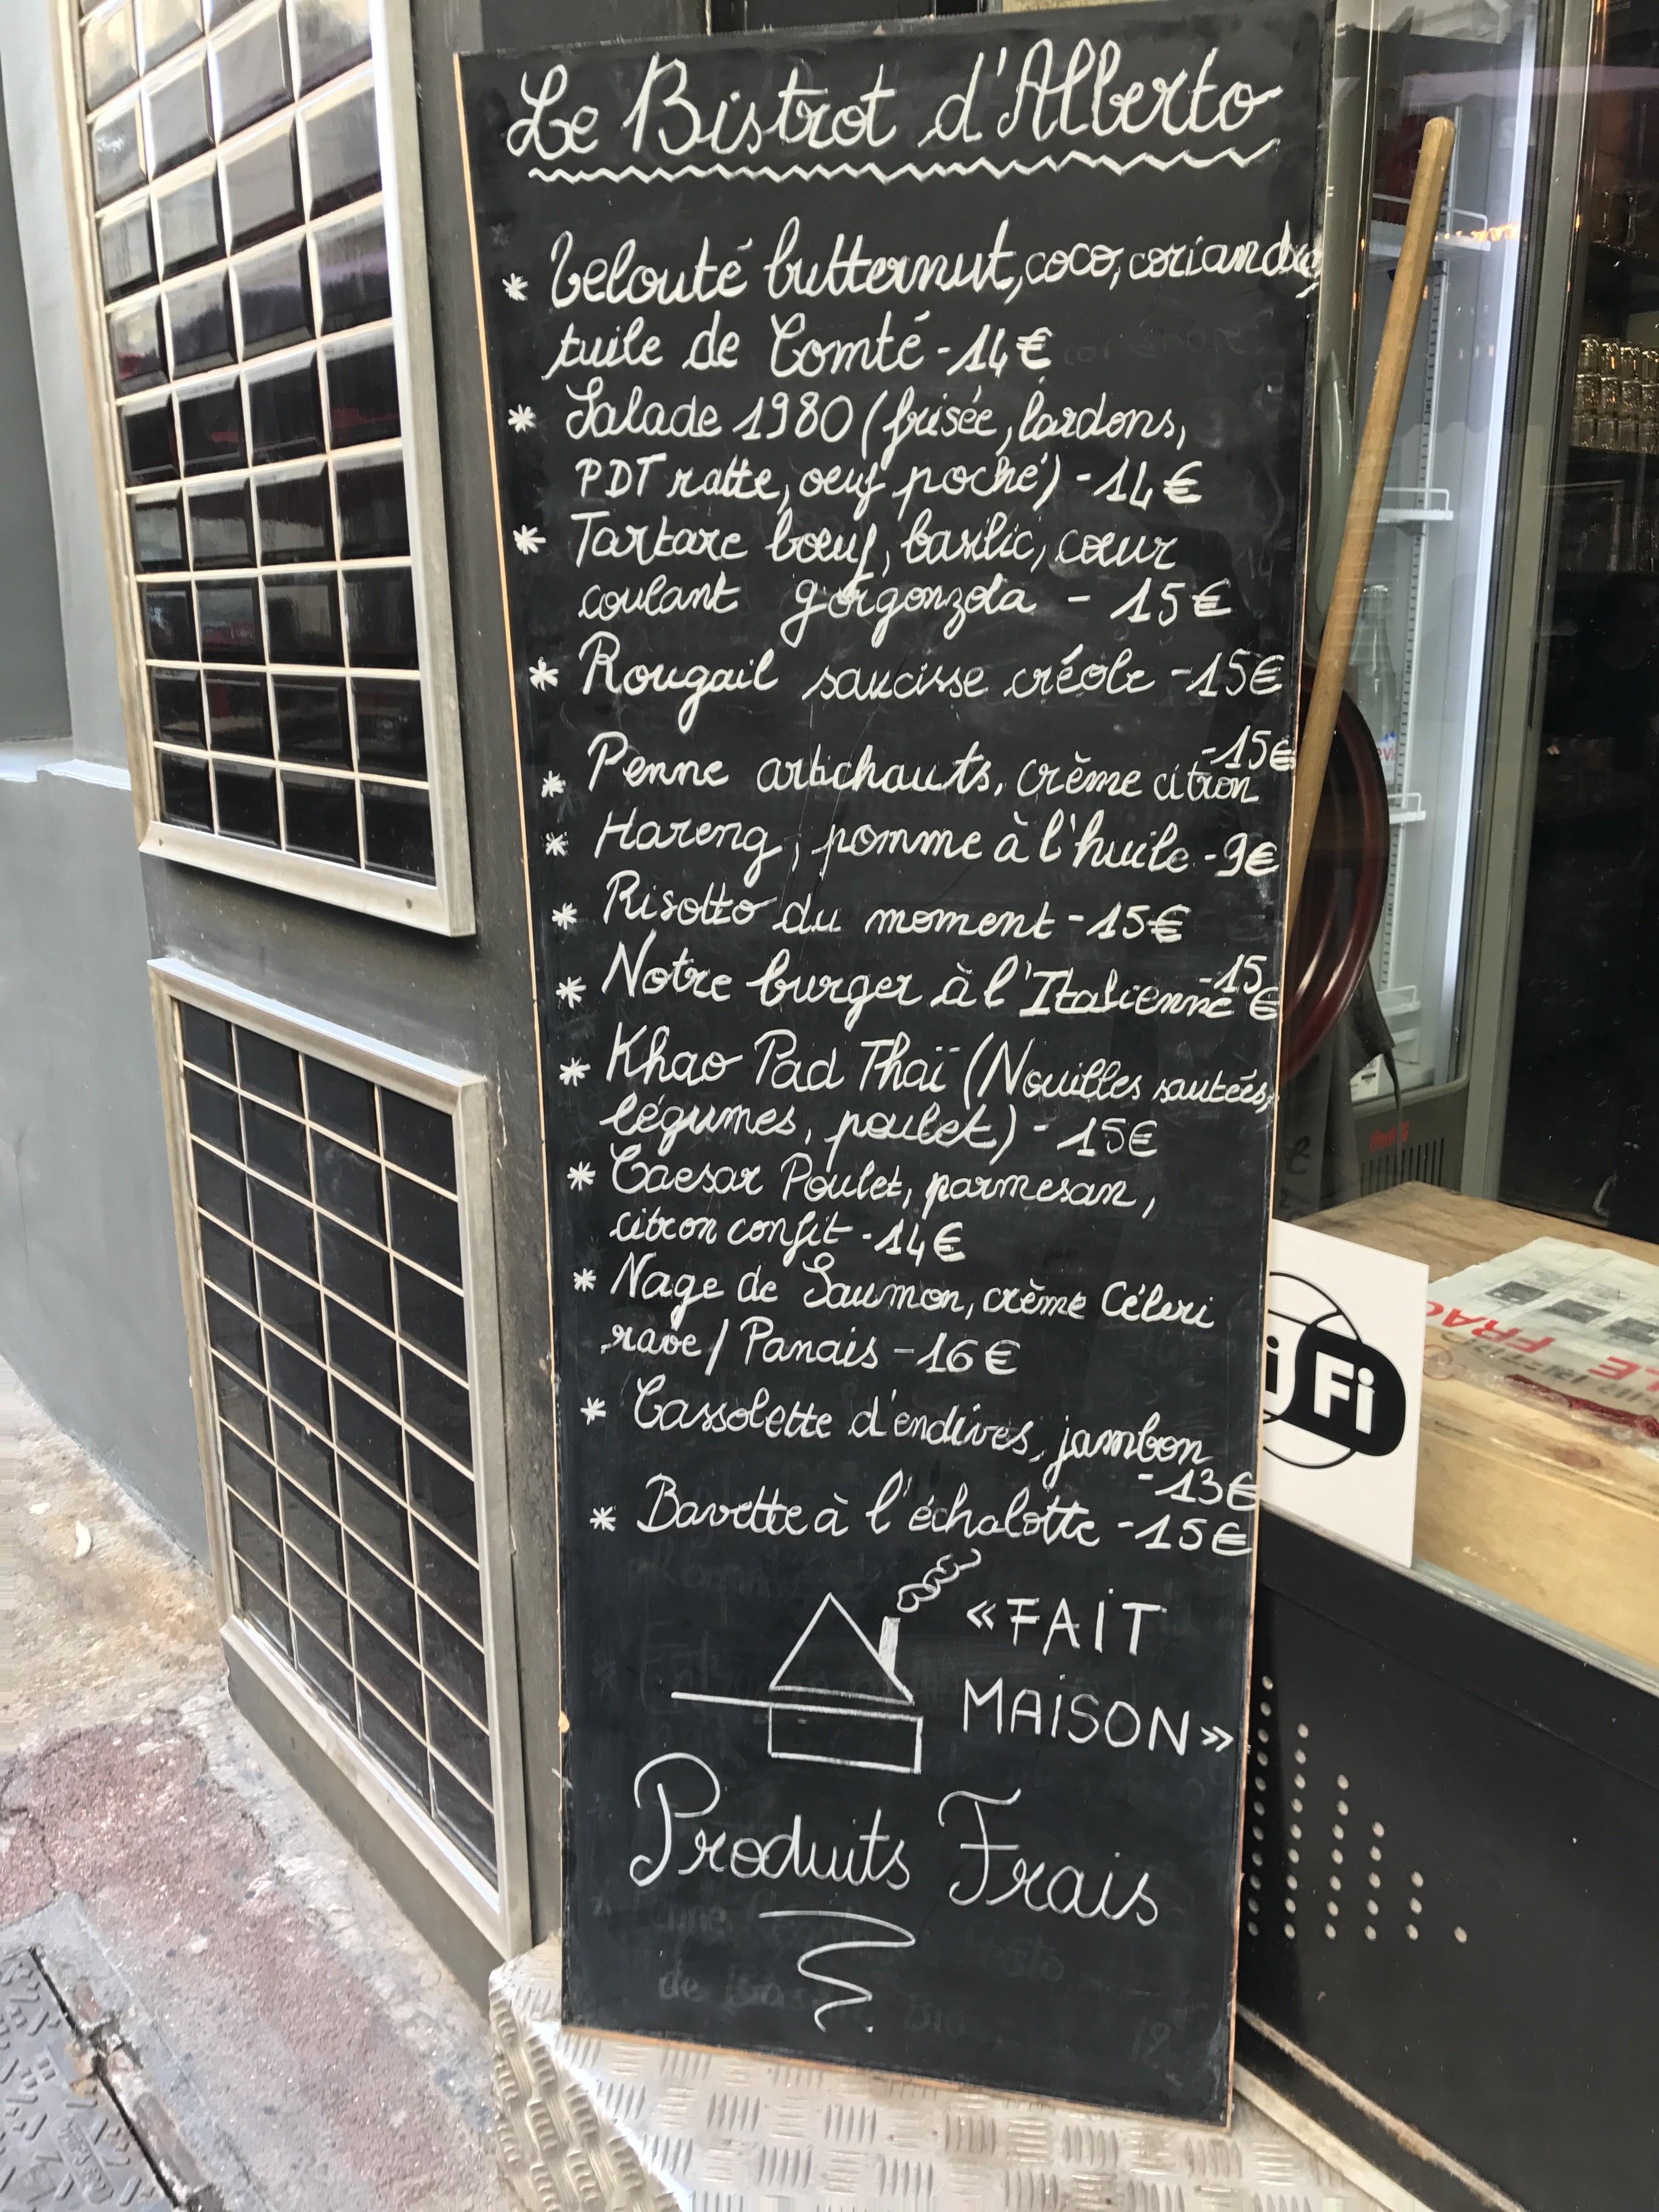 Le Bistrot d'Alberto
* Velouté butternut, coco, coriandre,
tuile de Comté - 14€
* Salade 1980 (frisée, lardons,
PDT ratte, oeuf poché) - 14€
* Tartare bœuf, basilic, cœur
coulant gorgonzola - 15€
* Rougail saucisse créole - 15€
* Penne artichauts, crème citron - 15€
* Hareng, pomme à l'huile - 9€
* Risotto du moment - 15€
* Notre burger à l'Italienne - 15€
* Khao Pad Thaï (Nouilles sautées,
légumes, poulet) - 15€
* Caesar Poulet, parmesan,
citron confit - 14€
* Nage de Saumon, crème Céleri
rave / Panais - 16€
* Cassolette d'endives, jambon
- 13€
* Bavette à l'échalotte - 15€
« FAIT
MAISON »
Produits Frais
Fi